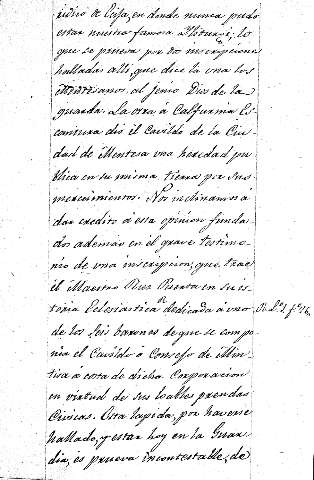 judio de Ceifa, en donde nunca pudo
estar nuestra famosa Iliturgi; lo
que se prueva por dos inscripciones
halladas alli, que dice la una los
Mentesanos al Jenio Dios de la
guarda. La otra á Calfurnia Es-
cantura dió el Cavildo de la Ciu-
dad de Mentesa una heredad pu-
blica en su misma tierra por sus
merecimientos. Nos inclinamos a
dar credito á esta opinion funda-
dos ademas en el grave testimo-
nio de una inscripcion, que trae
el Maestro Rus Puerta en su is-
toria Eclesiastica dedicada á uno
de los seis barones de que se compo-
nia el Cavildo ó Consejo de Men-
tesa á costa de dicha Corporacion
en virtud de sus loables prendas
Civicas. Esta lapida, por haverse
hallado, y estar hoy en la Guar-
dia, es prueva incontestable, de